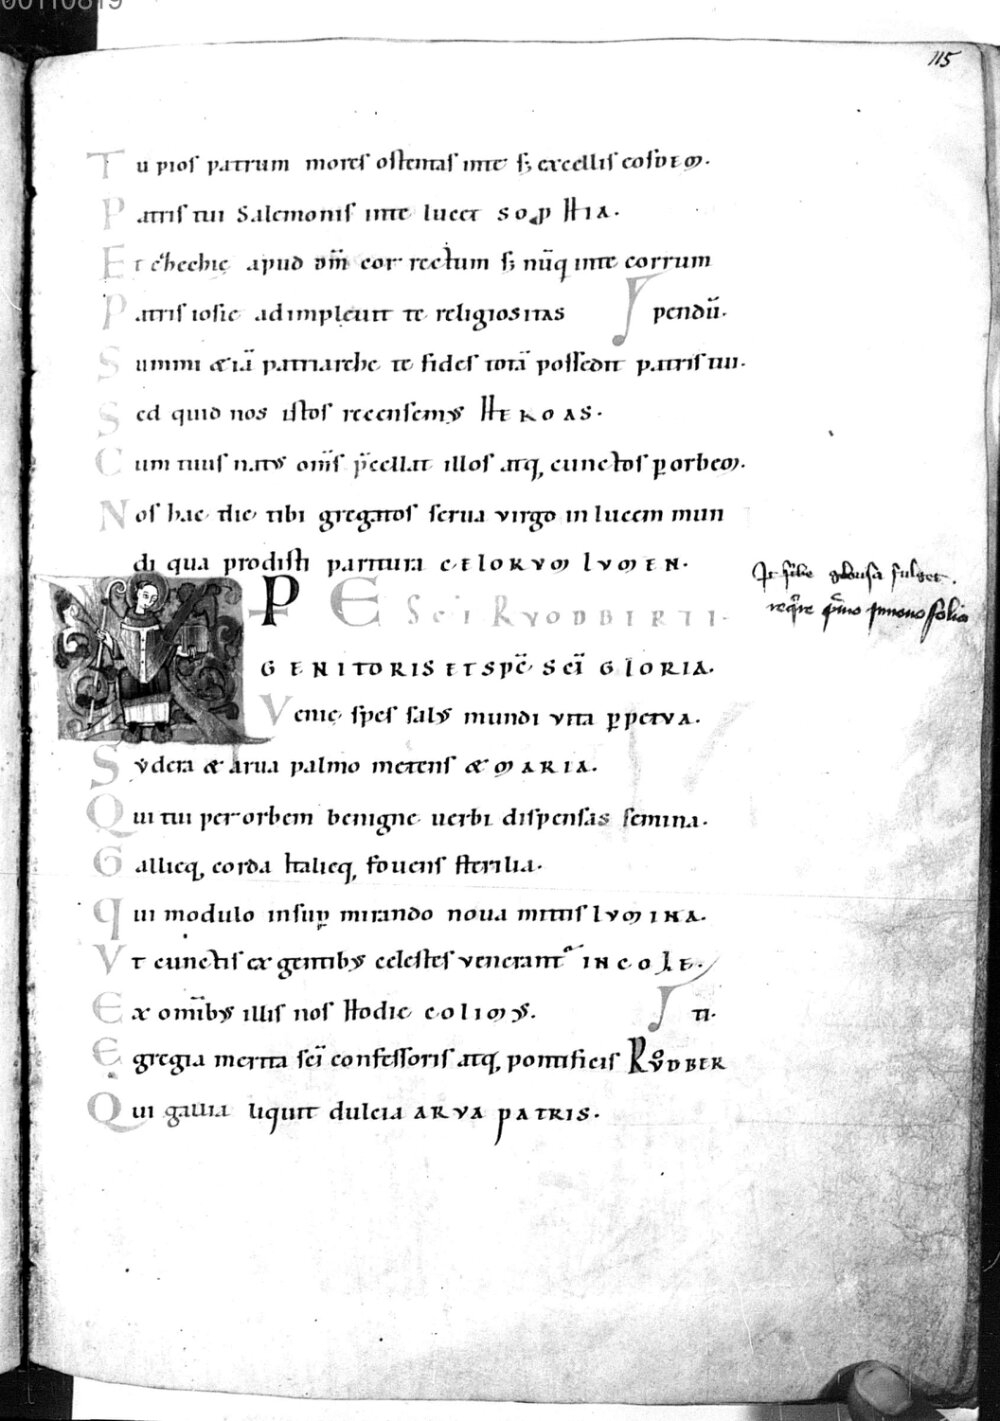 00110819
115
Tu pios patrum mores ostentas in te s; excellis eosdem.
Patris tui Salemonis in te lucet sophia.
Et ezhechie apud dm̄ cor rectum s; nūq in te corrum
Patris iosie adimpleuit te religiositas pendū.
Summi & iā patriarche te fides totā possedit patris tui.
Sed quid nos istos recensemus heroas.
Cum tuus natus om̄s p̄cellat illos atq, cunctos p orbem.
Nos hac die tibi gregatos serua virgo in lucem mun
di qua prodisti paritura celorum lumen.
P E Sc̄i Rvodbirti.
genitoris et sp̄c sc̄i gloria.
Venie spes salus mundi vita ppetva.
Sydera & arua palmo metens & maria.
Qui tui per orbem benigne uerbi dispensas semina.
Gallieq, corda Italieq, fouens sterilia.
Qui modulo insup mirando noua mittis lumina.
Vt cunctis ex gentibus celestes venerant incole.
Ex om̄ibus illis nos hodie colimus. ti.
Egregia merita sc̄i confessoris atq, pontificis Rvodber
Qui gallia liquit dulcia arva patris.